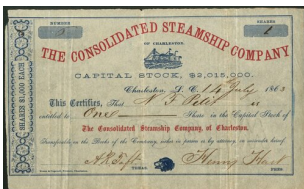 NUMBER
SHARES
1
THE CONSOLIDATED STEAMSHIP COMPANY
OF CHARLESTON.
CAPITAL STOCK, $2,015,000.
Charleston, S. C. 14 July 1863
This Certifies, That
is
entitled to One Share in the Capital Stock of
The Consolidated Steamship Company, of Charleston,
Transferable on the Books of the Company, either in person or by attorney, on surrender hereof.
TREAS.
Henry Hart
PRES.
SHARES $1,000 EACH